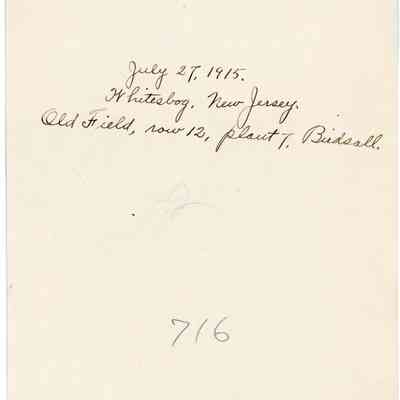 July 27, 1915.
Whitesbog, New Jersey.
Old Field, row 12, plant 7, Birdsall.
716